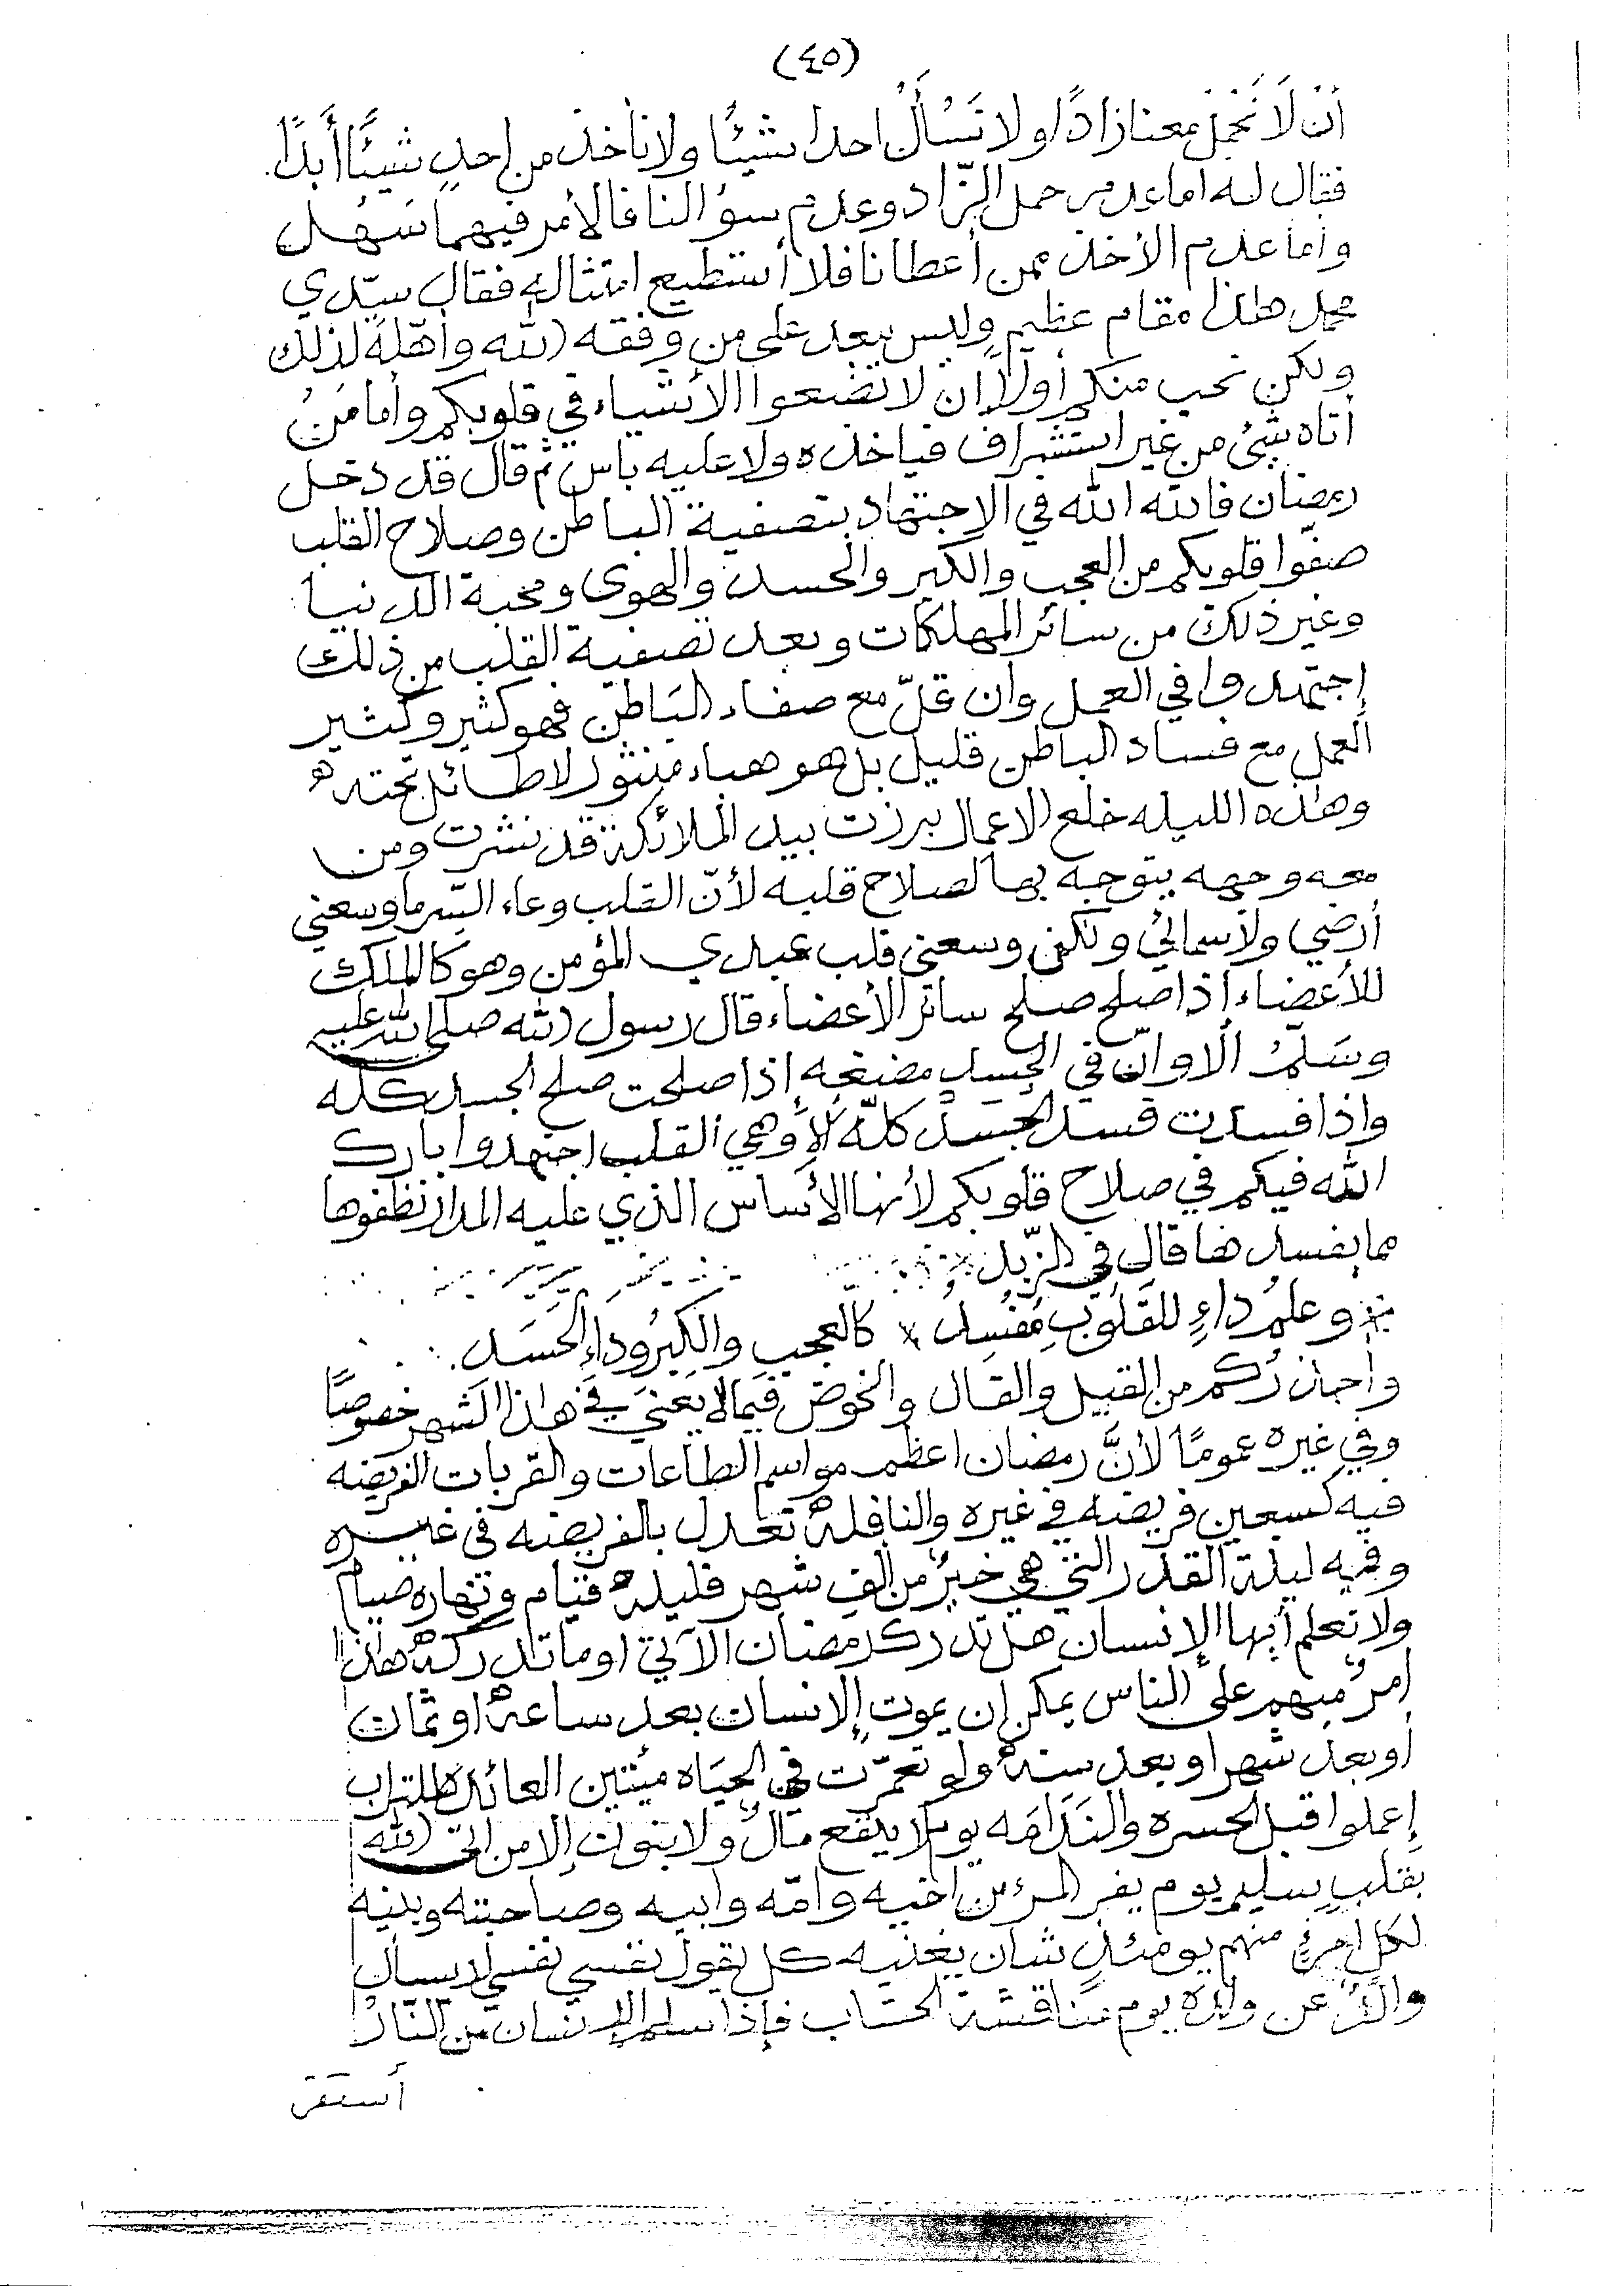 (٤٥)
أنْ لَا نَحْمِل معنا زادًا ولا نَسْأَلْ احدا شيئًا ولا نأخذ من احدٍ شيئًا أَبدًا.
فقال له اما عدم حمل الزّاد وعدم سؤالنا فالأمر فيهما سَهْل
واما عدم الأخذ ممن أعطانا فلا أستطيع امتثاله فقال سيّدي
محمد هذا مقام عظيمٍ وليس ببعد على من وفقه الله وأهّله لذلك
ولكن نحب منكم أولاً ان لا تضعوا الأشياء في قلوبكم وأما مَنْ
أتاه شئ من غير استشراف فياخذه ولا عليه باس ثم قال قد دخل
رمضان فالله الله في الإجتهاد بتصفية الباطن وصلاح القلب
صفّوا قلوبكم من العجب والكبر والحسد والهوى ومحبة الدنيا
وغير ذلك من سائر المهلكات وبعد تصفية القلب من ذلك
إجتهدوا في العمل وان قلّ مع صفاء الباطن فهو كثير وكثير
العمل مع فساد الباطن قليل بل هو هباء منثور لا طائل تحته
وهذه الليله خلع الاعمال برزت بيد الملائكة قد نشرت ومن
معه وجهه يتوجه بها لصلاح قلبه لأنّ القلب وعاء السّر ما وسعني
أرضي ولا سمائي ولكن وسعني قلب عبدي المؤمن وهو كالملك
للأعضاء اذا صلح صلح سائر الأعضاء قال رسول الله صلى الله عليه
وسَلّمْ ألا وانّ في الجسد مضغه إذا صلحت صلح الجسد كله
واذا فسدت فسد الجسد كلّه ألا وهي القلب اجتهدوا بارك
الله فيكم في صلاح قلوبكم لأنها الأساس الذي عليه المدار نظفوها
مما يفسدها قال في الزّبد
وعلمُ داءٍ للقلُوبِ مُفْسِدِ * كالعجب والكبرُ وداءِ الحَسَد
وأحذركم من القيل والقال والخوض فيما لا يَعني في هاذا الشهر خصوصًا
وفي غيره عمومًا لأنَّ رمضان اعظم مواسم الطاعات والقربات الفريضه
فيه كسبعين فريضه في غيره والنافلة تعدل بالفريضه في غيره
وفيه ليلة القدر التي هي خيرٌ من ألف شهر فليله قيام ونهاره صيام
ولا تعلم أيها الإنسان هل تدرك رمضان الآتي او ما تدركه هاذا
امرٌ مبهم على الناس يمكن ان يموت الإنسان بعد ساعة او ثمان
أو بعد شهر او بعد سنة ولو تعمّرت في الحياه ميتين العائده للتراب
إعملوا قبل الحسره والنَدَامَه يوم لا ينفع مالٌ ولا بنون إلا من اتى الله
بقلبٍ سليم يوم يفر المرء من اخيه وامّه وابيه وصاحبته وبنيه
لكل امرئٍ منهم يومئذٍ شان يغنيه كل يقول نفسي نفسي لا يسأل
والدٌ عن ولده يوم مناقشة الحساب فإذا سلم الإنسان من النّار
أستقر